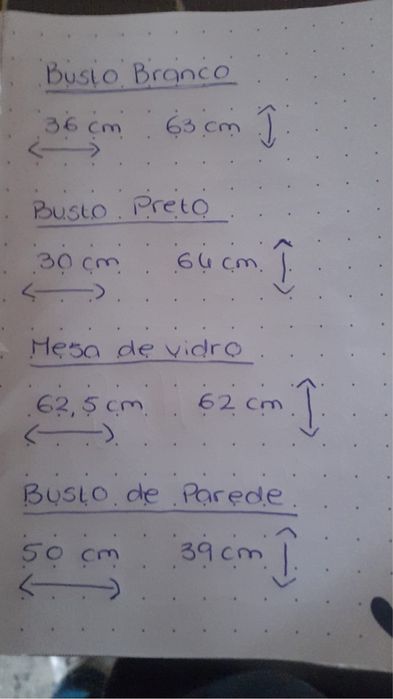 Busto Branco
36 cm 63 cm
Busto Preto
30 cm 64 cm
Mesa de vidro
62,5 cm 62 cm
Busto de Parede
50 cm 39 cm